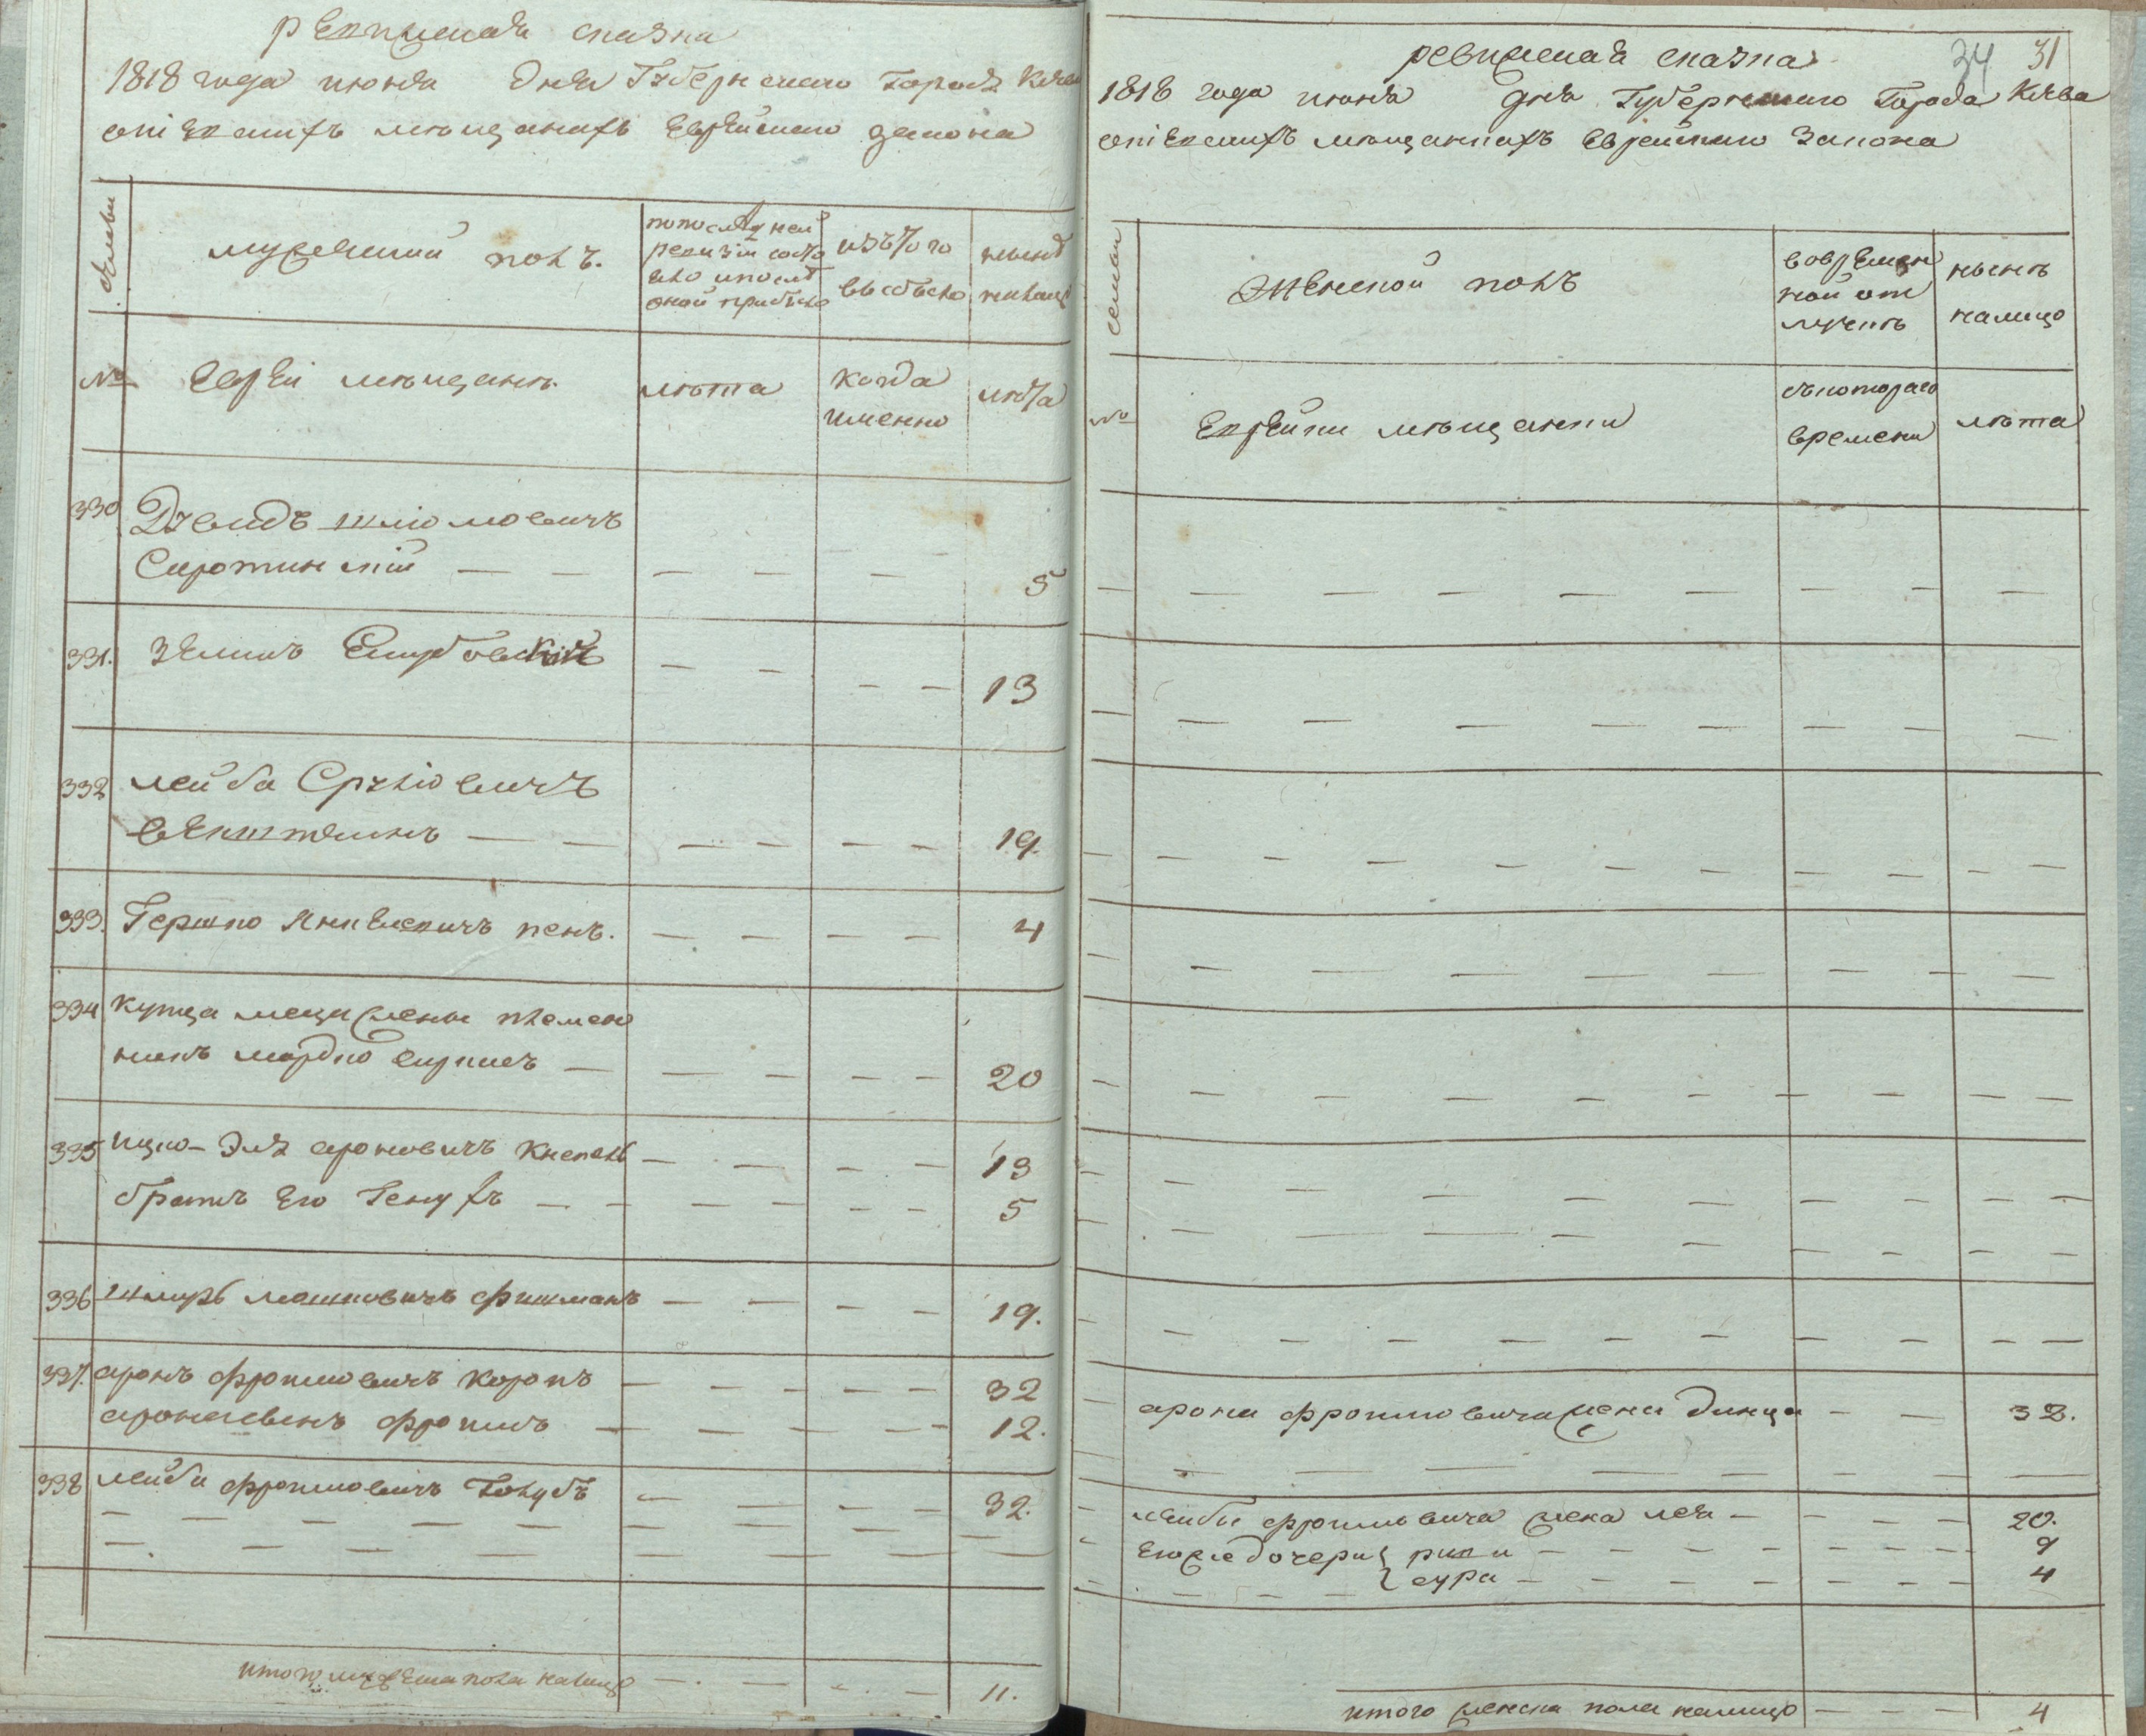 ревижская сказка
1818 года июня дня Губернскаго Города Киева
о кiевскихъ мѣщанахъ Еврейскаго закона
семьи
мужеский полъ.
по последней ревизiи состояло и после оной прибыло
изъ того выбыло
ныне налицо
№
Евреи мѣщане.
лѣта
когда именно
лѣта
330 Давидъ шлiомовичъ
Сиротинскiй — — — — — 5
331. Зеликъ — — — — 13
332 лейба Срулiовичъ
векштейнъ — — — — — — 19.
333. Гершко Янкелевичъ кенъ. — — — — 4
334 купца жены племен
никъ мордко — — — — — 20
335 ицко-Эля ароновичъ — — — — 13
братъ Его Генухъ — — — — — — 5
336 шмуль мошковичъ фишманъ — — — — 19.
337. аронъ фроимовичъ Коропъ — — — — — 32
арона сынъ фроимъ — — — — — 12.
338 лейба фроимовичъ Голубъ — — — — 32.
итого мужеска пола налицо — — — — 11.
34 31
ревижская сказка
1818 года июня дня Губернскаго Города Киева
о кiевскихъ мѣщанкахъ Еврейскаго Закона
семьи
Женской полъ
во временной отлучкѣ
нынѣ налицо
№
Еврейки мѣщанки
съ котораго времени
лѣта
арона фроимовича жена — — 32.
лейбы фроимовича жена лея — — — — — 20.
Его же дочери { — — — — — — 9
сура — — — — — — 4
итого женска пола налицо — — — — 4